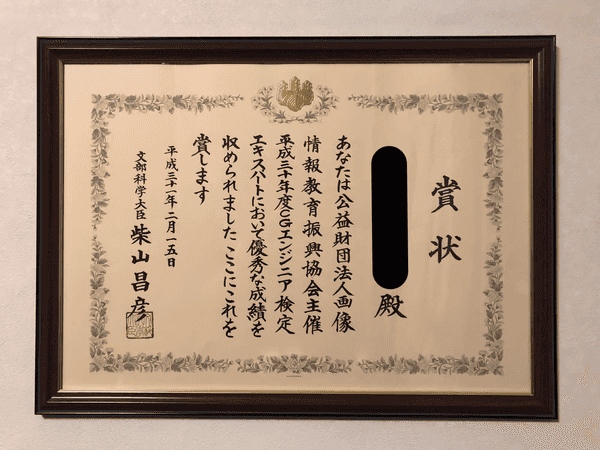 賞状
殿
あなたは公益財団法人画像
情報教育振興協会主催
平成三十年度CGエンジニア検定
エキスパートにおいて優秀な成績を
収められました ここにこれを
賞します
平成三十一年二月一五日
文部科学大臣 柴山昌彦